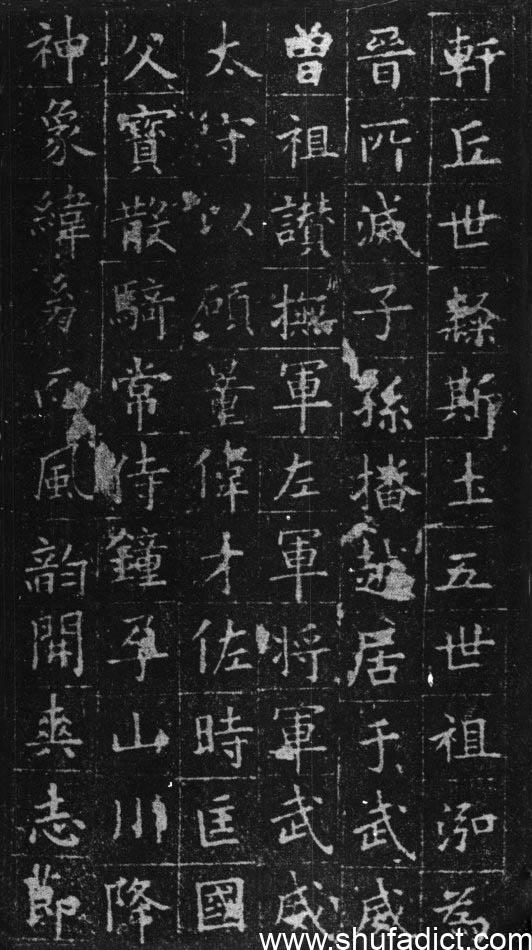 軒丘世斯土五世祖泓為
晉所滅子孫播越居于武威
曾祖讃撫軍左軍将軍武威
太守以碩量偉才佐時匡國
父寶散騎常侍鐘孕山川降
神象緯風韵開爽志節
www.shufadict.com